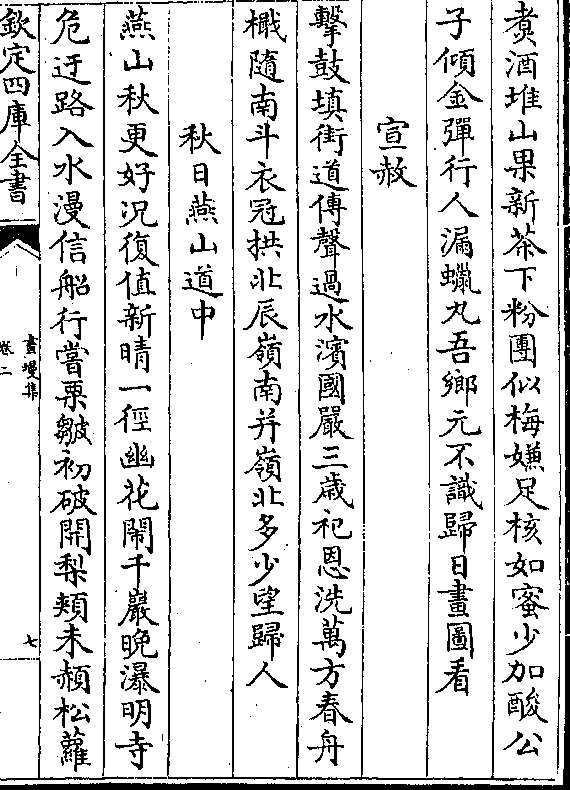 煑酒堆山果新茶下粉團似梅嫌足核如蜜少加酸公
子傾金彈行人漏蠟丸吾鄉元不識歸日畫圖看
宣赦
擊鼓填街道傳聲過水濱國嚴三歳祀恩洗萬方春舟
檝隨南斗衣冠拱北辰嶺南并嶺北多少望歸人
秋日燕山道中
燕山秋更好况復值新晴一徑幽花閙千巖晚瀑明寺
危迂路入水漫信船行嘗栗皺初破開梨頰未頳松蘿
欽定四庫全書
畫墁集
卷二
七